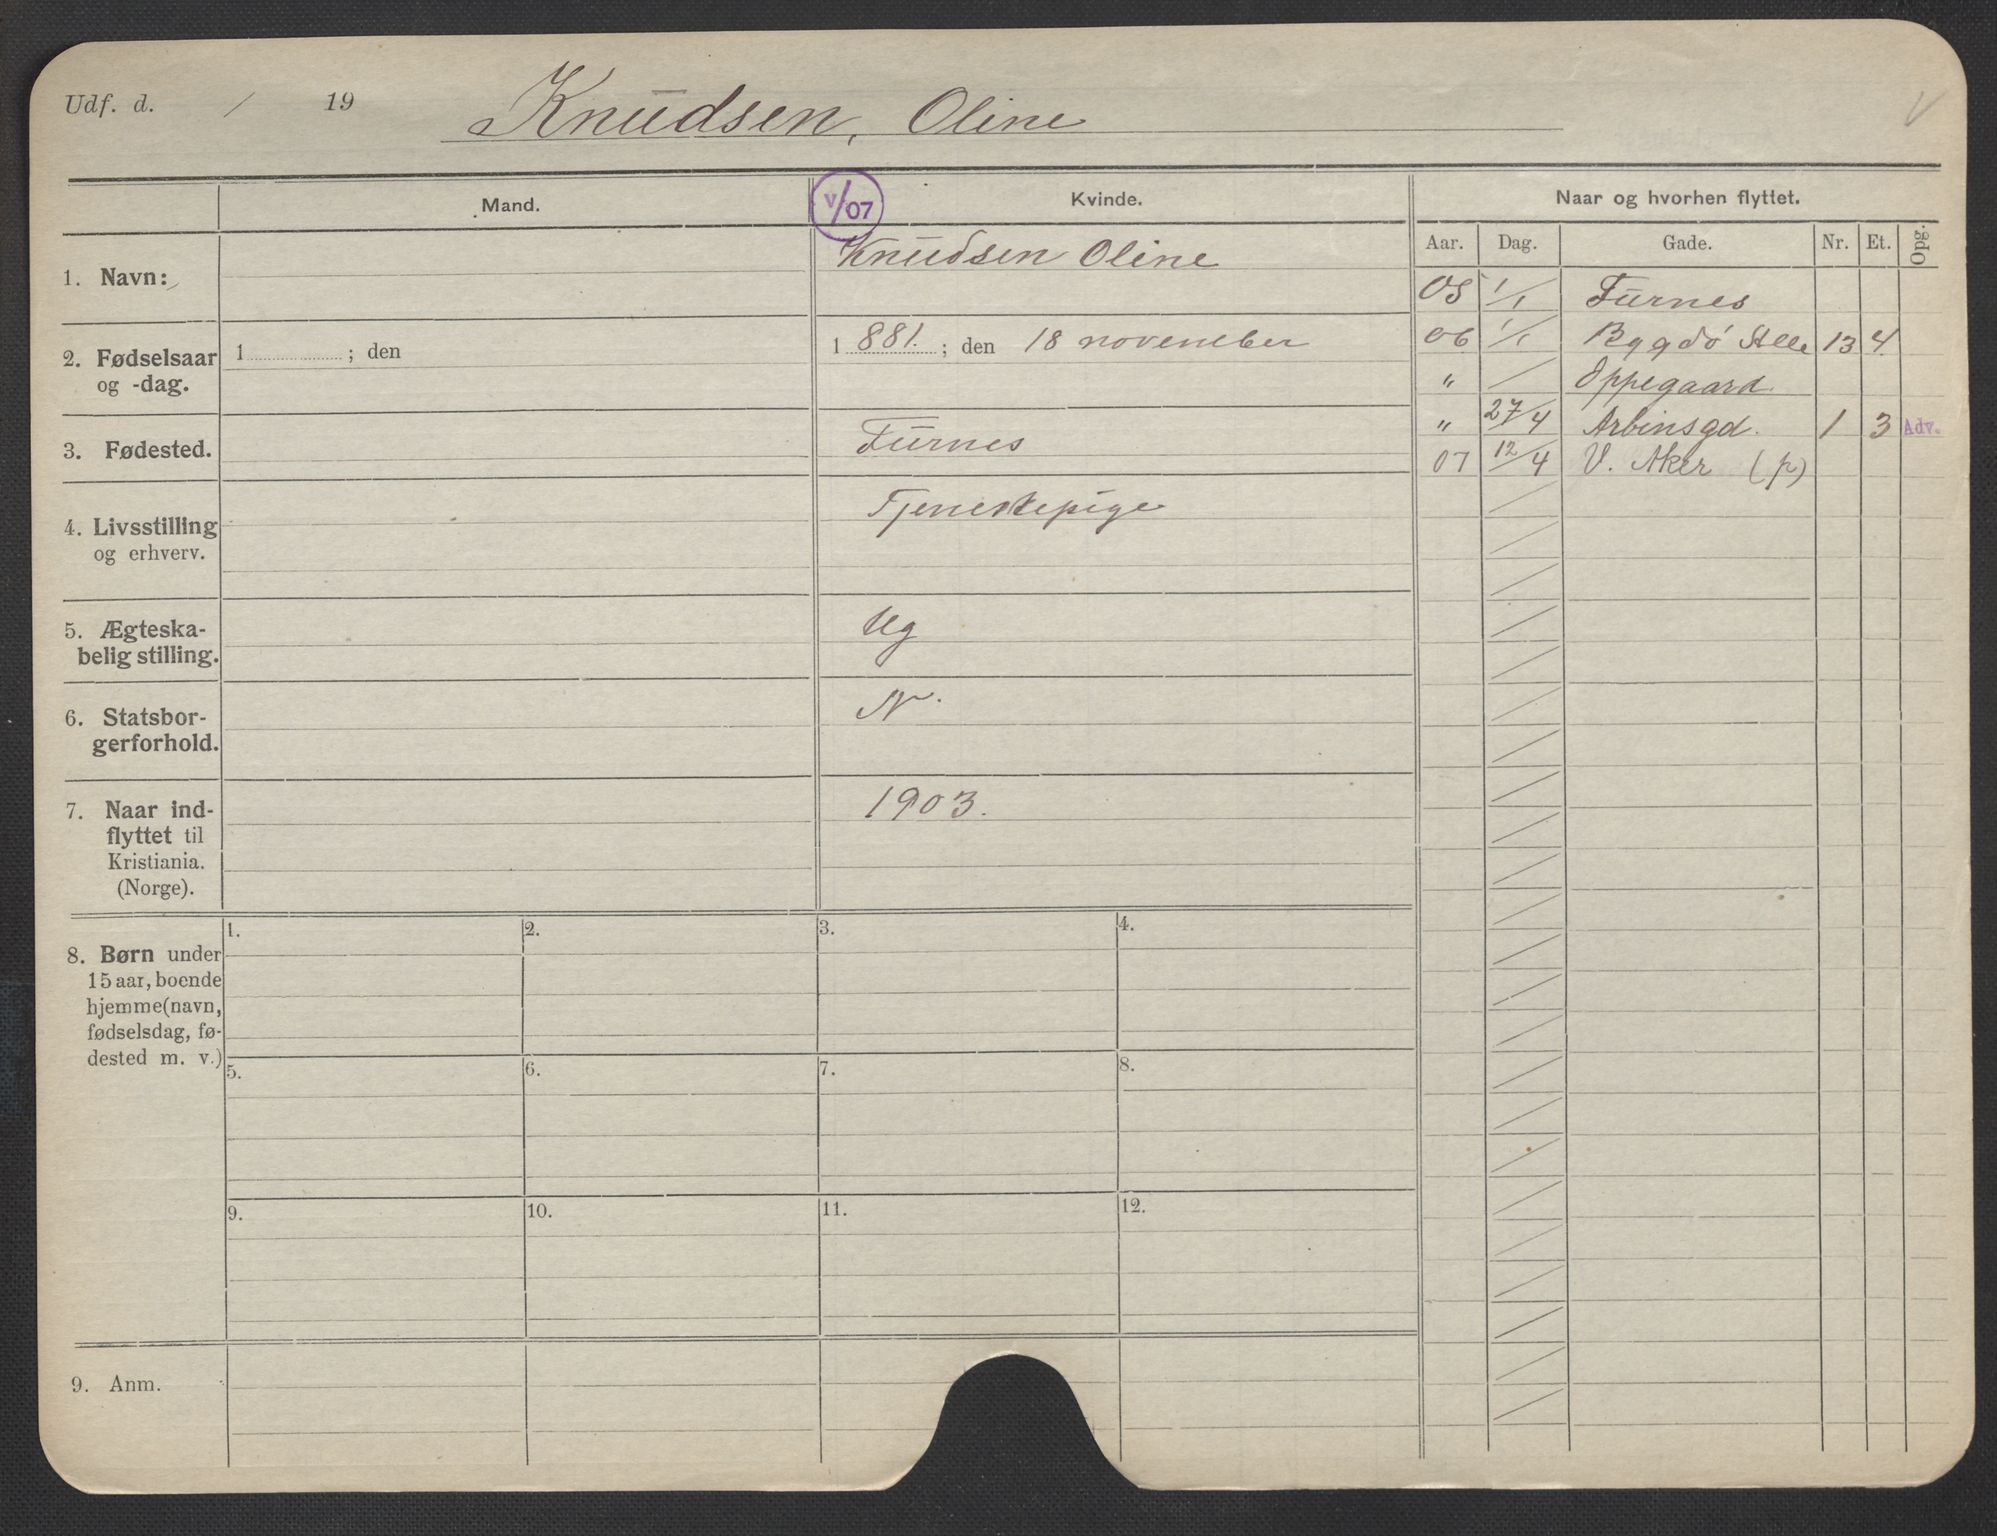 Udf. d. / 19
Knudsen, Oline
V
Mand.
V/07
Kvinde.
Naar og hvorhen flyttet.
Aar. Dag. Gade. Nr. Et. Opg.
1. Navn:
Knudsen Oline
05 1/1 Furnes
2. Fødselsaar
og -dag.
1 ; den
1 881. ; den 18 november
06 1/1 Bygdö Alle 13 4.
" / Oppegaard.
3. Fødested.
Furnes
" 27/4 Arbinsgd. 1 3 Adv.
07 12/4 V. Aker (p)
4. Livsstilling
og erhverv.
Tjenestepige
5. Ægteska-
belig stilling.
Ug
6. Statsbor-
gerforhold.
N.
7. Naar ind-
flyttet til
Kristiania.
(Norge).
1903.
8. Børn under
15 aar, boende
hjemme (navn,
fødselsdag, fø-
dested m. v.)
1. 2. 3. 4.
5. 6. 7. 8.
9. 10. 11. 12.
9. Anm.